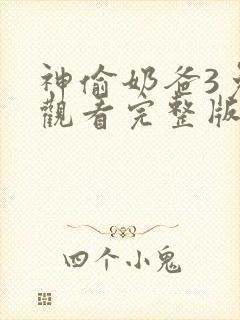 神偷奶爸3
觀看完整版
四个小鬼